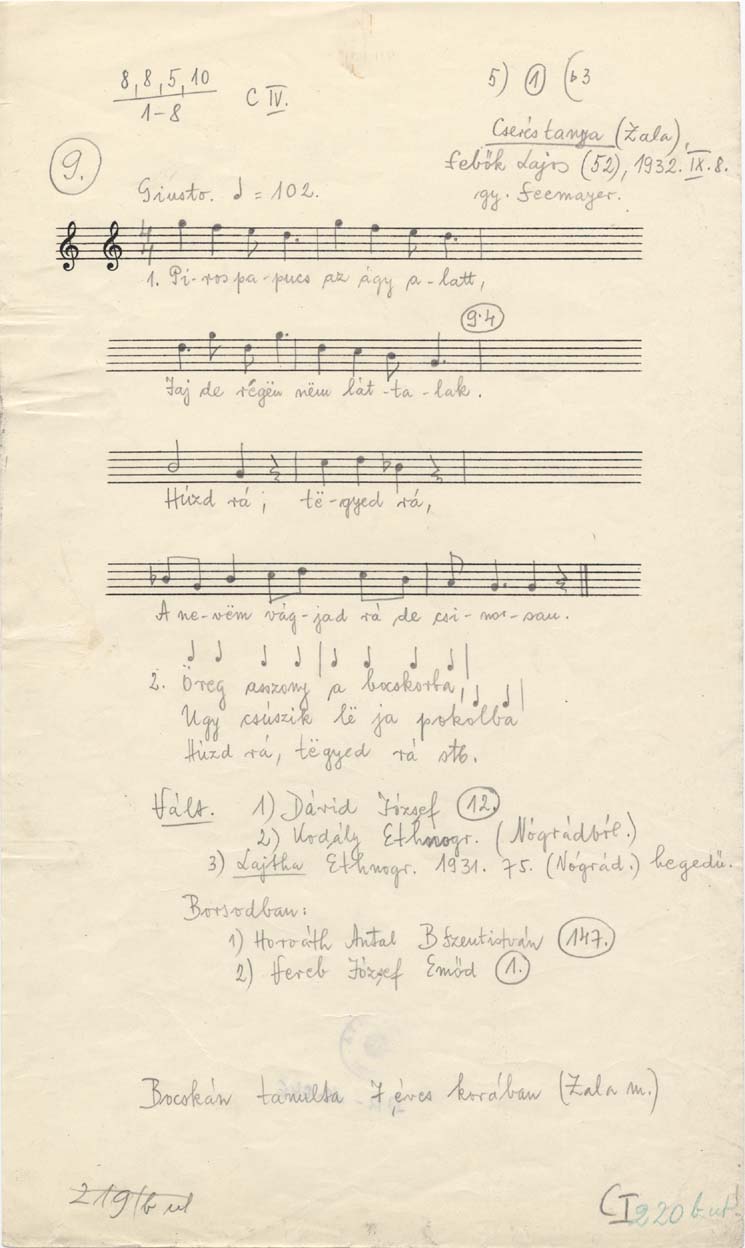 8,8,5,10
1-8
C IV.
5) 1 (b3
9.
Cserés tanya (Zala),
Lebők Lajos (52), 1932. IX. 8.
gy. Seemayer.
Giusto. = 102.
4/4
1. Piros pa-pucs az ágy a-latt,
9.4
Jaj de régën nëm lát-ta-lak.
Húzd rá; të-gyed rá,
A ne-vëm vág-jad rá de csi-nos-san.
2. Öreg asszony a bocskorba,
Ugy csúszik lë ja pokolba
Húzd rá, tëgyed rá stb.
Vált. 1) Dávid József 12.
2) Kodály Ethnogr. (Nógrádból.)
3) Lajtha Ethnogr. 1931. 75. (Nógrád.) hegedü.
Borsodban:
1) Horváth Antal B Szentistván 147.
2) Vereb József Emőd 1.
Bocskán tanulta 7 éves korában (Zala m.)
219/b ut
C I 220 b. ut.